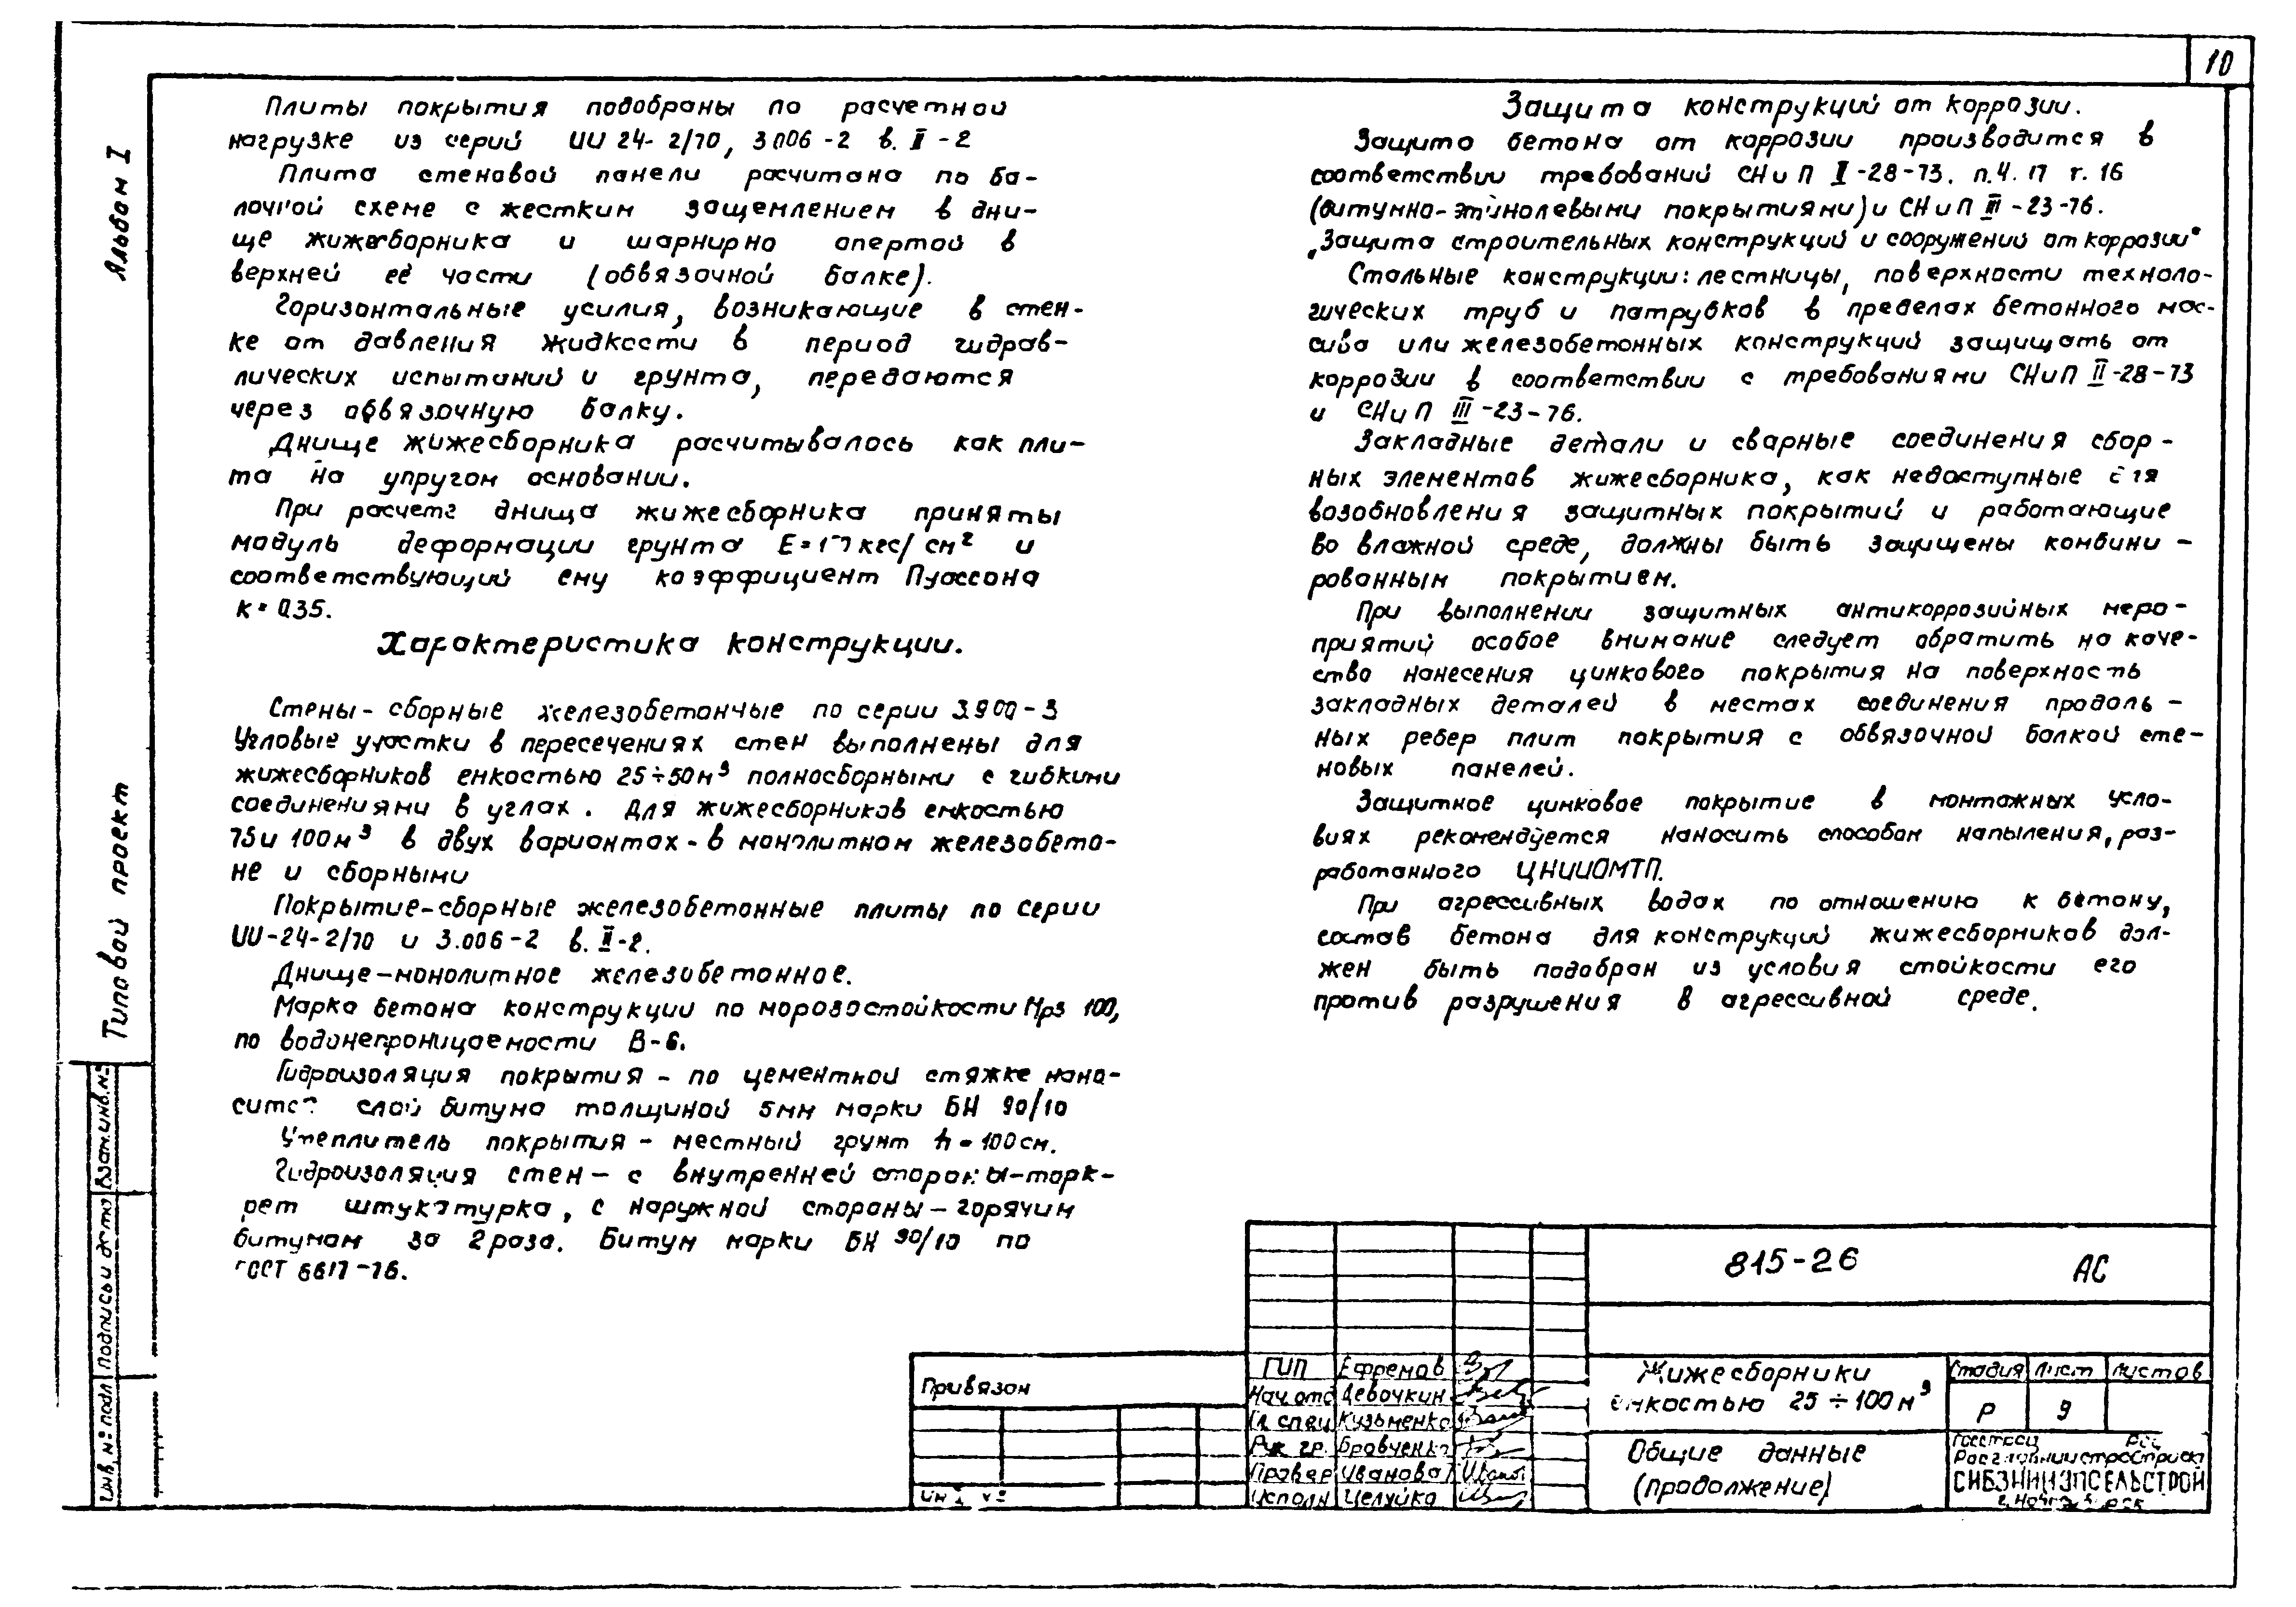 10
Плиты покрытия подобраны по расчетной
нагрузке из серий ИИ 24-2/70, 3.006-2 в. II-2
Плита стеновой панели расчитана по ба-
лочной схеме с жестким защемлением в дни-
ще жижесборника и шарнирно опертой в
верхней её части (обвязочной балке).
Горизонтальные усилия, возникающие в стен-
ке от давления жидкости в период гидрав-
лических испытаний и грунта, передаются
через обвязочную балку.
Днище жижесборника расчитывалось как пли-
та на упругом основании.
При расчете днища жижесборника приняты
модуль деформации грунта кгс/см² и
соответствующий ему коэффициент Пуассона
к=0.35.
Характеристика конструкции.
Стены-сборные железобетонные по серии 3.900-3
Угловые участки в пересечениях стен выполнены для
жижесборников емкостью 25÷50м³ полносборными с гибкими
соединениями в углах. Для жижесборников емкостью
75и 100м³ в двух вариантах-в монолитном железобето-
не и сборными
Покрытие-сборные железобетонные плиты по серии
ИИ-24-2/70 и 3.006-2 в. II-2.
Днище-монолитное железобетонное.
Марка бетона конструкции по морозостойкости Мрз 100,
по водонепроницаемости В-6.
Гидроизоляция покрытия - по цементной стяжке нано-
сится слой битума толщиной 5мм марки БН 90/10
Утеплитель покрытия - местный грунт h=100см.
Гидроизоляция стен - с внутренней стороны-торк-
рет штукатурка, с наружной стороны-горячим
битумом за 2 раза. Битум марки БН 90/10 по
ГОСТ 6617-76.
Защита конструкций от коррозии.
Защита бетона от коррозии производится в
соответствии требований СНиП II-28-73. п.4. 17 т. 16
(битумно-этинолевыми покрытиями) и СНиП III-23-76.
„Защита строительных конструкций и сооружений от коррозии"
Стальные конструкции: лестницы, поверхности техноло-
гических труб и патрубков в пределах бетонного мас-
сива или железобетонных конструкций защищать от
коррозии в соответствии с требованиями СНиП II-28-73
и СНиП III-23-76.
Закладные детали и сварные соединения сбор-
ных элементов жижесборника, как недоступные для
возобновления защитных покрытий и работающие
во влажной среде, должны быть защищены комбини-
рованным покрытием.
При выполнении защитных антикоррозийных меро-
приятий особое внимание следует обратить на каче-
ство нанесения цинкового покрытия на поверхность
закладных деталей в местах соединения продоль-
ных ребер плит покрытия с обвязочной балкой сте-
новых панелей.
Защитное цинковое покрытие в монтажных усло-
виях рекомендуется наносить способом напыления, раз-
работанного ЦНИИОМТП.
При агрессивных водах по отношению к бетону,
состав бетона для конструкций жижесборников дол-
жен быть подобран из условия стойкости его
против разрушения в агрессивной среде.
Альбом I
Типовой проект
Взам.инв.№
Подпись и дата
Инв. № подл
Привязан
Инв. №
ГИП Ефремов
Нач отд Девочкин
Гл. спец Кузьменко
Рук гр. Бравченко
Провер Иванова
Исполн Целуйко
815-26 АС
Жижесборники
емкостью 25÷100м³
Стадия Лист Листов
Р 9
Общие данные
(продолжение)
Госстрой
СИБЗНИИЭПСЕЛЬСТРОЙ